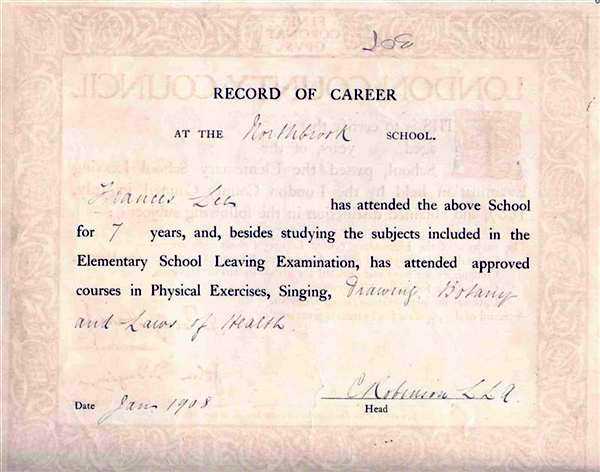 RECORD OF CAREER
AT THE Northbrook SCHOOL.
Frances Lee has attended the above School
for 7 years, and, besides studying the subjects included in the
Elementary School Leaving Examination, has attended approved
courses in Physical Exercises, Singing, Drawing, Botany
and Laws of Health.
C Robinson L L A.
Date Jan 1908 Head
LONDON COUNTY COUNCIL